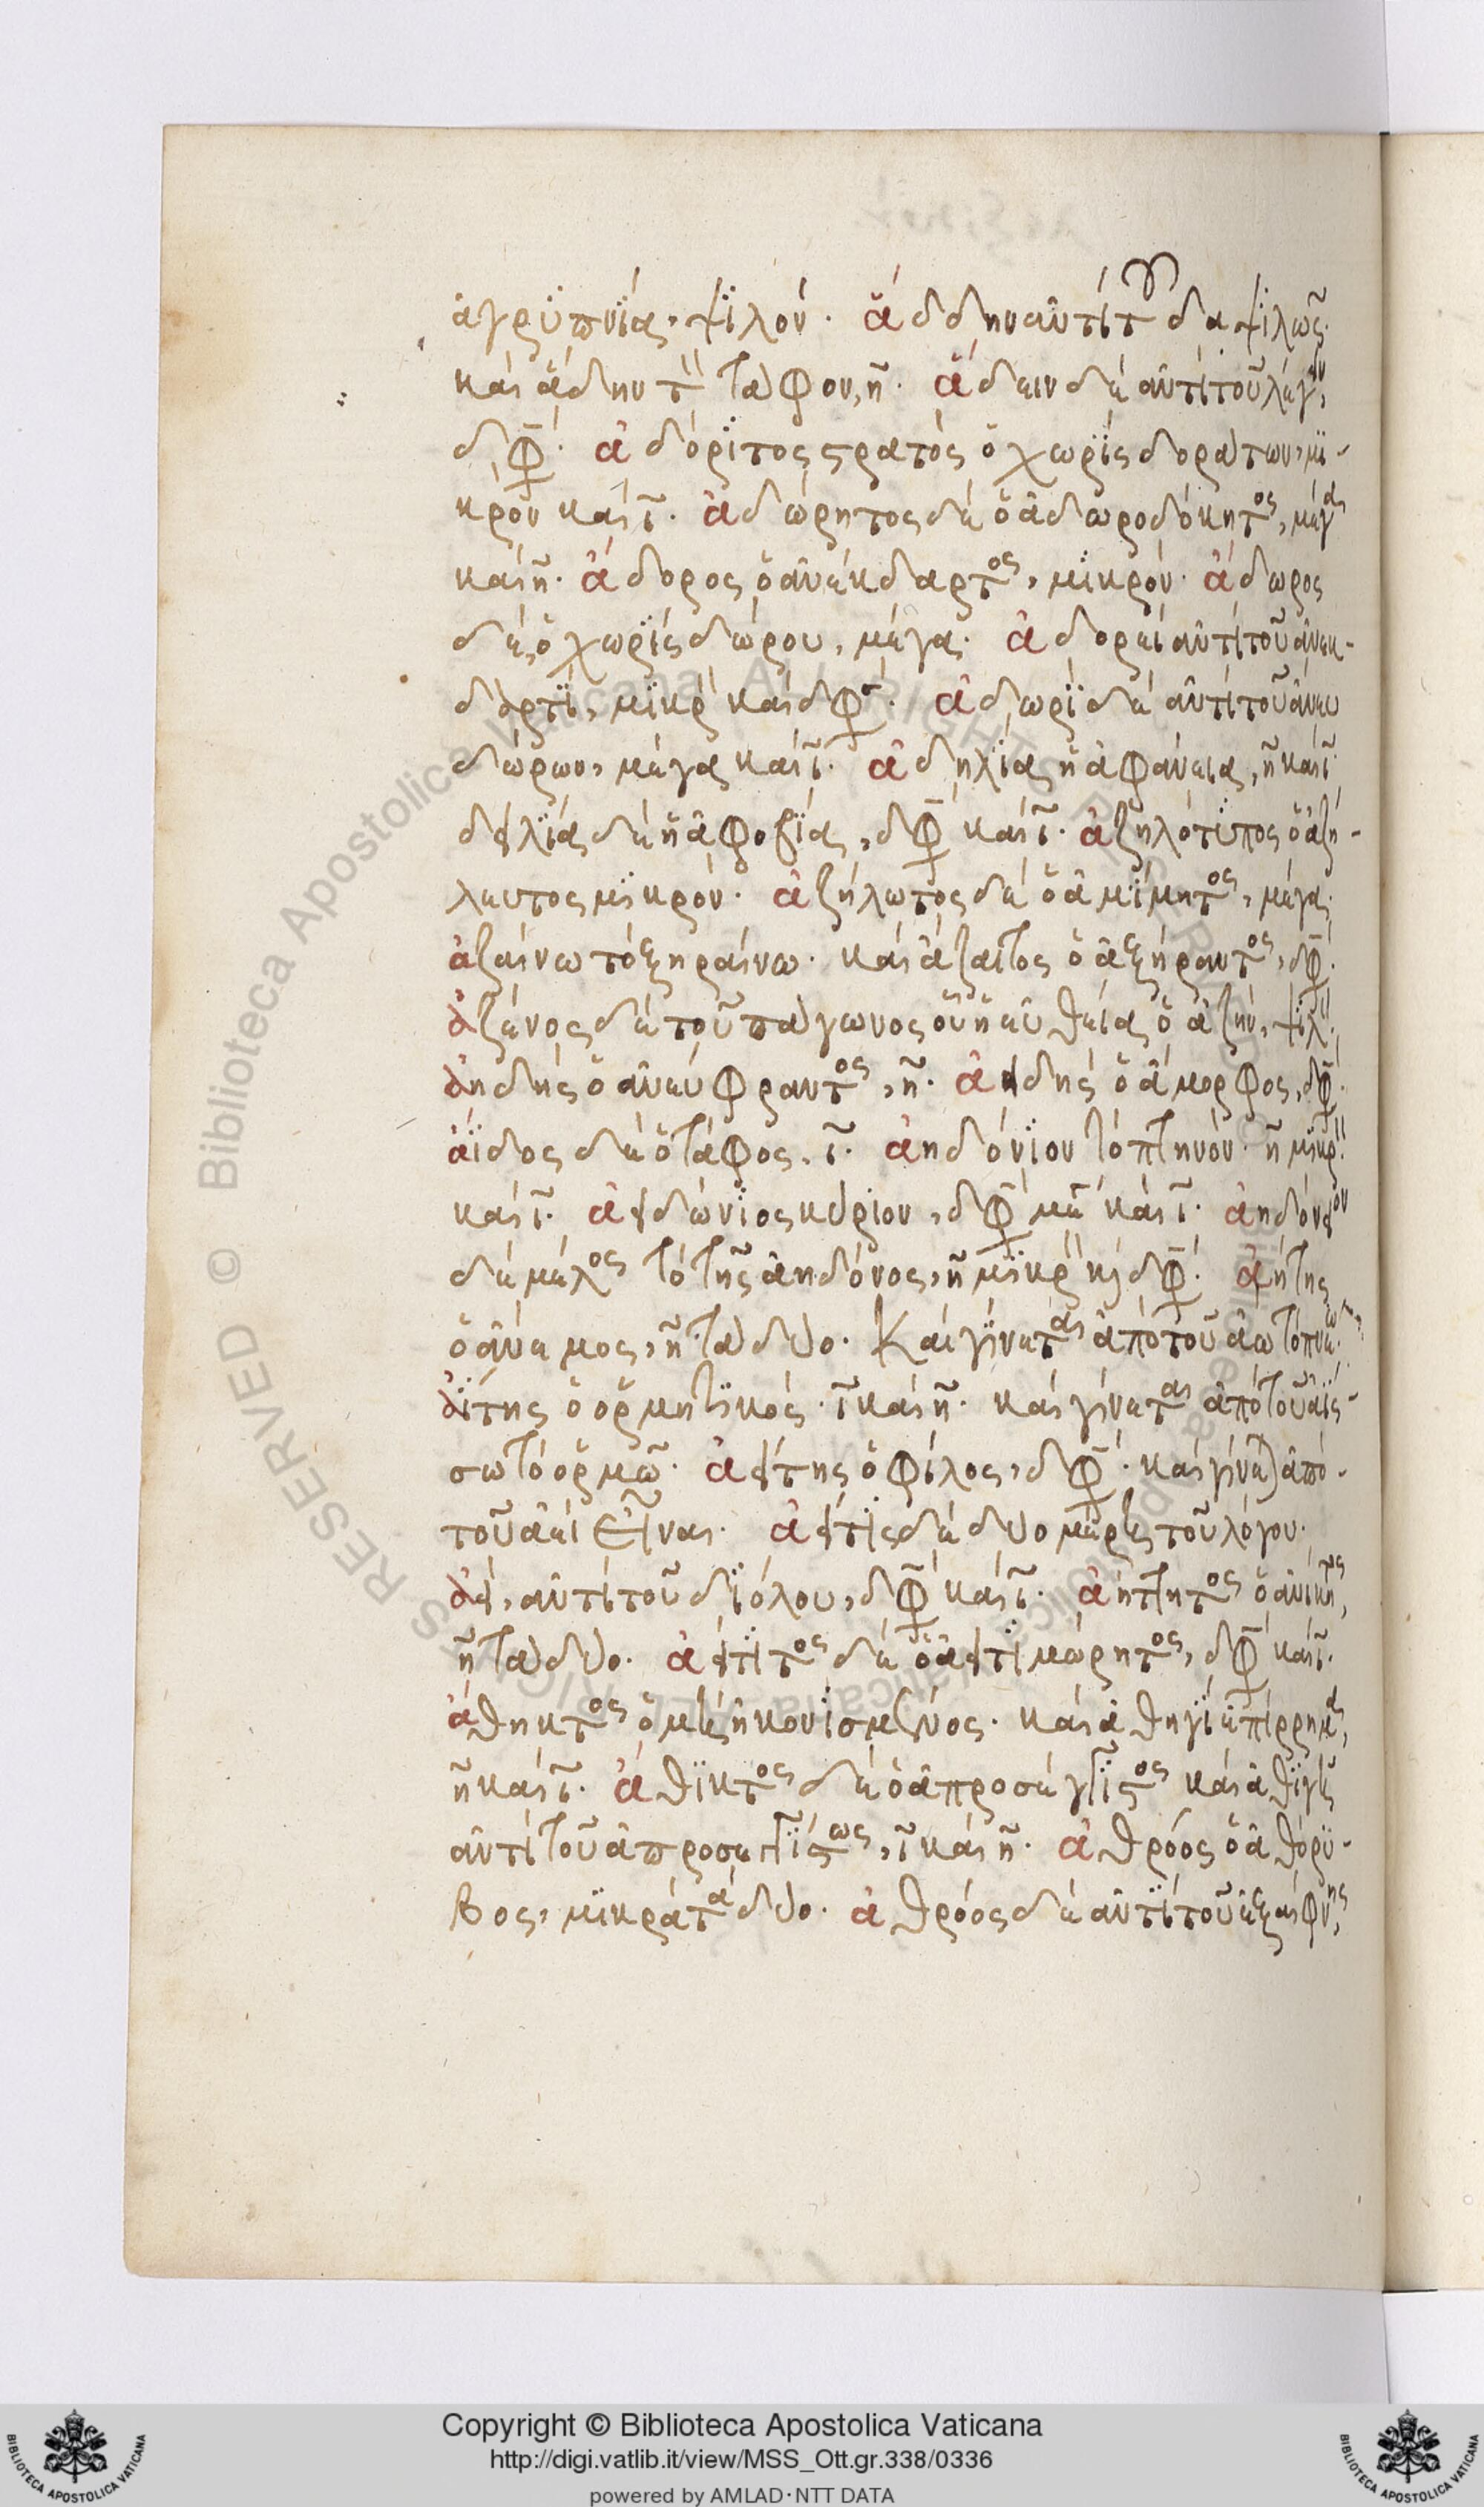 ἀγρϋπνΐα, ψϊλόν. ἄδδην ἀντὶ τ δαψϊλῶς.
καὶ ἄδην τ τάφον, η. ἄδειν δὲ ἀντὶ τοῦ λέγειν,
δφ. ἀδόρϊτος στρατὸς ὁ χωρὶς δοράτων, μϊ-
κρὸν καὶ ι. ἀδώρητος δὲ ὁ ἀδωροδόκητος, μέγας
καὶ η. ἄδορος ὁ ἀνέκδαρτος, μϊκρόν. ἄδωρος
δὲ, ὁ χωρὶς δώρου, μέγα. ἀδορεὶ ἀντὶ τοῦ ἀνεκ-
δορτὶ, μϊκρ καὶ δφ. ἀδωρὶ δὲ ἀντὶ τοῦ ἄνευ
δώρων, μέγα καὶ ι. ἀδηλία ἡ ἀφάνεια, η καὶ ι
δειλία δὲ ἡ ἀφοβΐα, δφ καὶ ι. ἀζηλότϋπος ὁ ἀζή-
λευτος μϊκρόν. ἀζήλωτος δὲ ὁ ἀμίμητος, μέγα.
ἀζαίνω τὸ ξηραίνω. καὶ ἄζαιτος ὁ ἀξήραντος, δφ.
ἀζένος δὲ τοῦ πάγωνος οὗ ἡ εὐθεία ὁ ἀζὴν, ψϊλ.
ἀηδὴς ὁ ἀνεύφραντος, η. ἀειδὴς ὁ ἄμορφος, δφ.
ἄϊδος δὲ ὁ τάφος. ι. ἀηδόνϊον τὸ πτηνόν. η μϊκρ.
καὶ ι. ἀειδώνϊος κύριον, δφ με καὶ ι. ἀηδόνειον
δὲ μέλος τὸ τῆς ἀηδόνος, η μϊκρ κὶ δφ. ἀήτης
ὁ ἄνεμος, η τὰ δύο. Καὶ γίνεται ἀπὸ τοῦ ἄω τὸ πνέω.
ἀΐτης ὁ ὁρμητϊκὸς. ι καὶ η. καὶ γίνεται ἀπὸ τοῦ ἀΐς-
σω τὸ ὁρμῶ. ἀείτης ὁ φίλος, δφ. καὶ γίνεται ἀπὸ
τοῦ ἀεὶ εἶναι. ἀείτϊς δὲ δύο μέρη τοῦ λόγου.
ἀεὶ, ἀντὶ τοῦ δϊόλου, δφ καὶ ι. ἀήττητος ὁ ἀνίκητος,
η τὰ δύο. ἀείτϊτος δὲ ὁ ἀειτϊμώρητος, δφ καὶ ι.
ἄθηκτος ὁ μὴ ἠκονϊσμένος. καὶ ἀθηγὶ ἐπίρρημα,
η καὶ ι. ἄθϊκτος δὲ ὁ ἀπροσέγγϊστος καὶ ἀθϊγὴς
ἀντὶ τοῦ ἀπροσεγγΐστως, ι καὶ η. ἀθρόος ὁ ἀθόρϋ-
βος, μϊκρὰ τὰ δύο. ἀθρόος δὲ ἀντὶ τοῦ ἐξαίφνης,
Copyright © Biblioteca Apostolica Vaticana
http://digi.vatlib.it/view/MSS_Ott.gr.338/0336
powered by AMLAD·NTT DATA